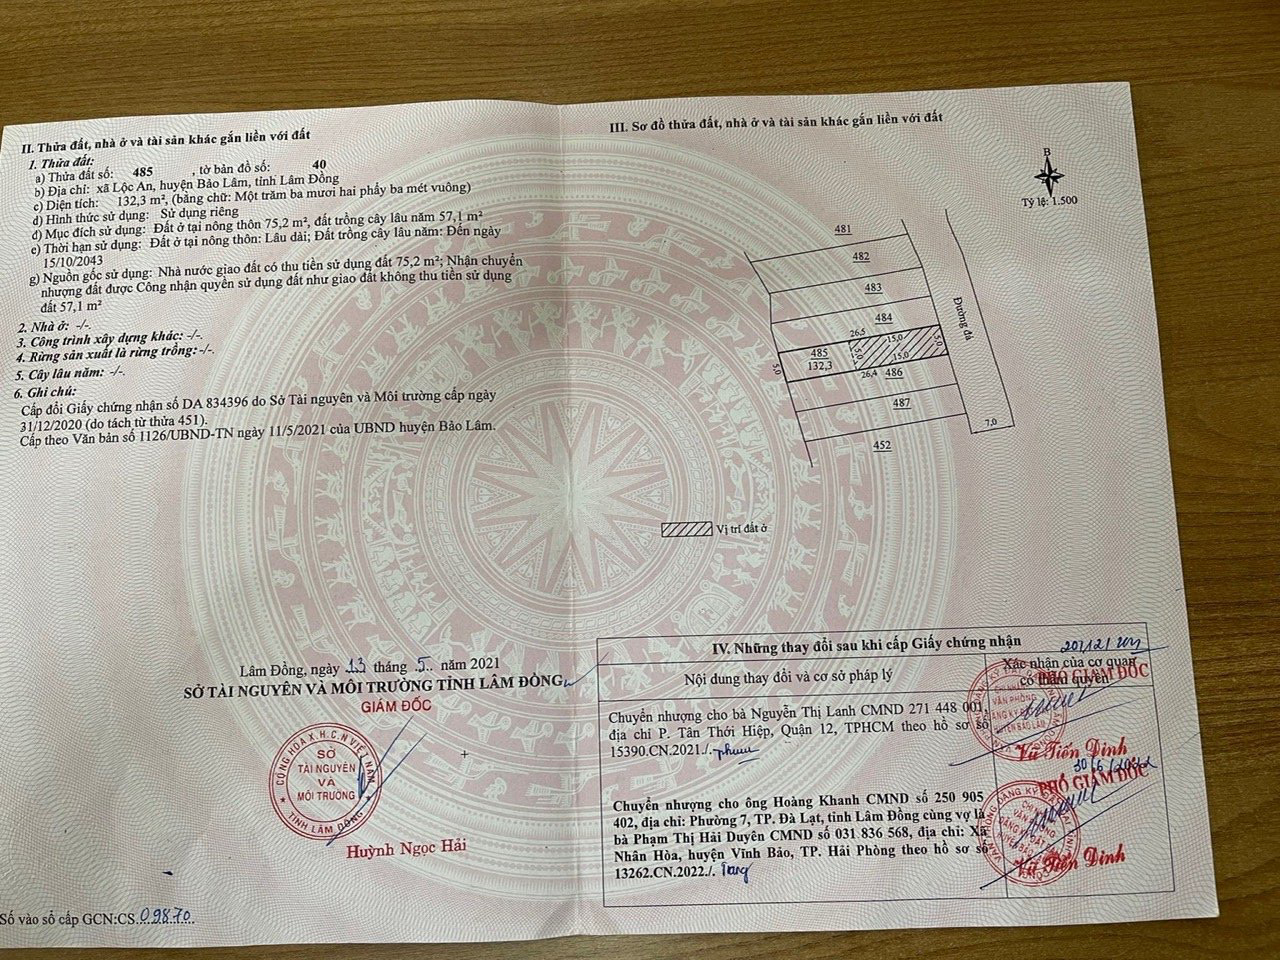 II. Thửa đất, nhà ở và tài sản khác gắn liền với đất
1. Thửa đất:
a) Thửa đất số: 485 , tờ bản đồ số: 40
b) Địa chỉ: xã Lộc An, huyện Bảo Lâm, tỉnh Lâm Đồng
c) Diện tích: 132,3 m², (bằng chữ: Một trăm ba mươi hai phẩy ba mét vuông)
d) Hình thức sử dụng: Sử dụng riêng
đ) Mục đích sử dụng: Đất ở tại nông thôn 75,2 m², đất trồng cây lâu năm 57,1 m²
e) Thời hạn sử dụng: Đất ở tại nông thôn: Lâu dài; Đất trồng cây lâu năm: Đến ngày
15/10/2043
g) Nguồn gốc sử dụng: Nhà nước giao đất có thu tiền sử dụng đất 75,2 m²; Nhận chuyển
nhượng đất được Công nhận quyền sử dụng đất như giao đất không thu tiền sử dụng
đất 57,1 m²
2. Nhà ở: -/-.
3. Công trình xây dựng khác: -/-.
4. Rừng sản xuất là rừng trồng: -/-.
5. Cây lâu năm: -/-.
6. Ghi chú:
Cấp đổi Giấy chứng nhận số DA 834396 do Sở Tài nguyên và Môi trường cấp ngày
31/12/2020 (do tách từ thửa 451).
Cấp theo Văn bản số 1126/UBND-TN ngày 11/5/2021 của UBND huyện Bảo Lâm.
Lâm Đồng, ngày 13 tháng 5 năm 2021
SỞ TÀI NGUYÊN VÀ MÔI TRƯỜNG TỈNH LÂM ĐỒNG
GIÁM ĐỐC
CỘNG HÒA X.H.C.N VIỆT NAM
SỞ
TÀI NGUYÊN
VÀ
MÔI TRƯỜNG
TỈNH LÂM ĐỒNG
Huỳnh Ngọc Hải
Số vào sổ cấp GCN:CS.09870
III. Sơ đồ thửa đất, nhà ở và tài sản khác gắn liền với đất
B
Tỷ lệ: 1.500
481
482
483
484
Đường đá
26,5
15,0
5,0
5,0
485
132,3
15,0
5,0
26,4
486
487
7,0
452
Vị trí đất ở
IV. Những thay đổi sau khi cấp Giấy chứng nhận
Nội dung thay đổi và cơ sở pháp lý
Xác nhận của cơ quan
có thẩm quyền
PHÓ GIÁM ĐỐC
Chuyển nhượng cho bà Nguyễn Thị Lanh CMND 271 448 001,
địa chỉ P. Tân Thới Hiệp, Quận 12, TPHCM theo hồ sơ số
15390.CN.2021./.
Vũ Tiến Dinh
30/6/2022
PHÓ GIÁM ĐỐC
Chuyển nhượng cho ông Hoàng Khanh CMND số 250 905
402, địa chỉ: Phường 7, TP. Đà Lạt, tỉnh Lâm Đồng cùng vợ là
bà Phạm Thị Hải Duyên CMND số 031 836 568, địa chỉ: Xã
Nhân Hòa, huyện Vĩnh Bảo, TP. Hải Phòng theo hồ sơ số
13262.CN.2022./. Trang
Vũ Tiến Dinh